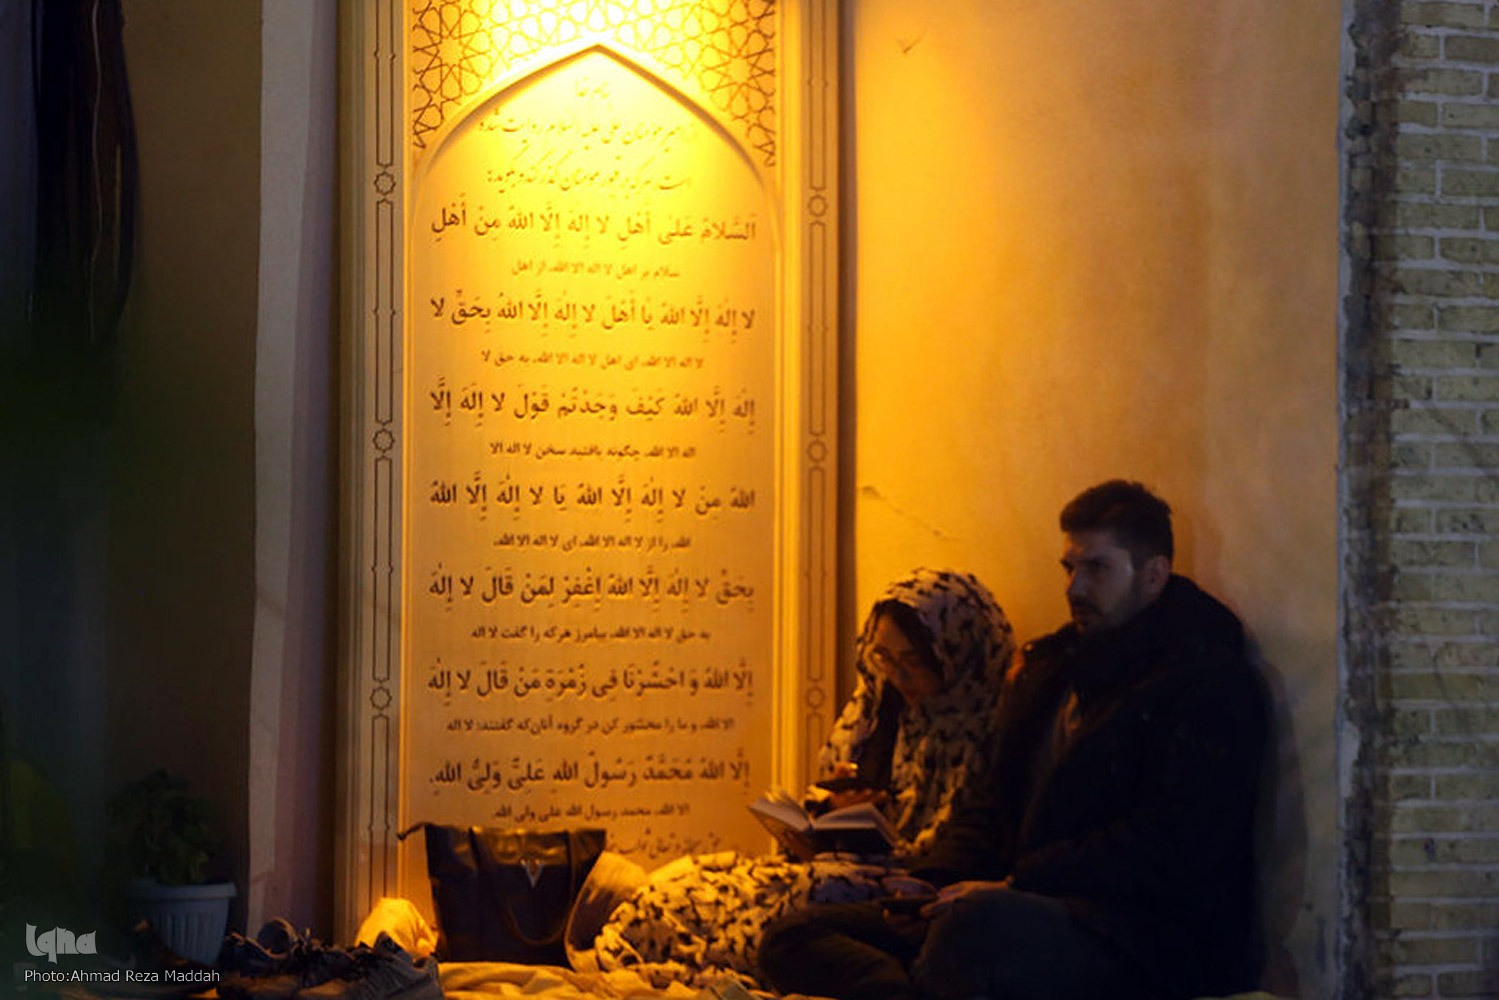 بسم الله
از امیر مؤمنان علی علیه السلام روایت شده
است هر که بر قبور مومنان گذر کند و بگوید:
اَلسَّلامُ عَلی أَهْلِ لا إِلهَ إِلَّا اللهُ مِنْ أَهْلِ
سلام بر اهل لا اله الا الله، از اهل
لا إِلهَ إِلَّا اللهُ یَا أَهْلَ لا إِلهَ إِلَّا اللهُ بِحَقِّ لا
لا اله الا الله، ای اهل لا اله الا الله، به حق لا
إِلهَ إِلَّا اللهُ کَیْفَ وَجَدْتُمْ قَوْلَ لا إِلَهَ إِلَّا
اله الا الله، چگونه یافتید سخن لا اله الا
اللهُ مِنْ لا إِلهَ إِلَّا اللهُ یَا لا إِلهَ إِلَّا اللهُ
الله را از لا اله الا الله، ای لا اله الا الله،
بِحَقِّ لا إِلهَ إِلَّا اللهُ اِغْفِرْ لِمَنْ قَالَ لا إِلهَ
به حق لا اله الا الله، بیامرز هرکه را گفت لا اله
إِلَّا اللهُ وَ احْشُرْنَا فِی زُمْرَةِ مَنْ قَالَ لا إِلهَ
الا الله، و ما را محشور کن در گروه آنان‌که گفتند: لا اله
إِلَّا اللهُ مُحَمَّدٌ رَسُولُ اللهِ عَلِیٌّ وَلِیُّ اللهِ.
الا الله، محمد رسول الله علی ولی الله.
سبحانه و تعالی ثواب
Iqna
Photo:Ahmad Reza Maddah